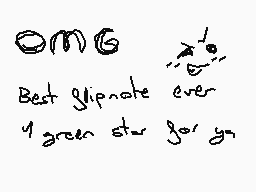 OMG
Best flipnote ever
1 green star for ya